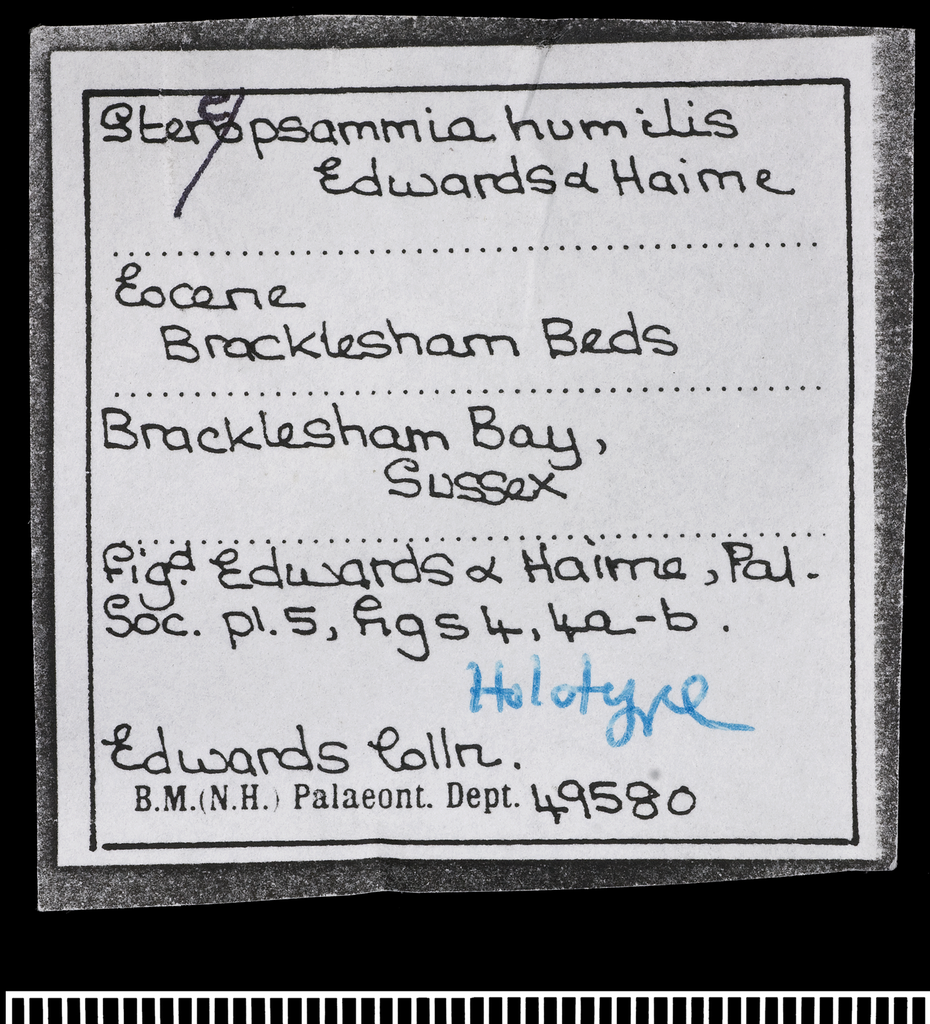 Stereopsammia humilis
Edwards & Haime
Eocene
Bracklesham Beds
Bracklesham Bay,
Sussex
Figd. Edwards & Haime, Pal.
Soc. pl. 5, figs 4, 4a-b.
Holotype
Edwards Colln.
B.M.(N.H.) Palaeont. Dept. 49580